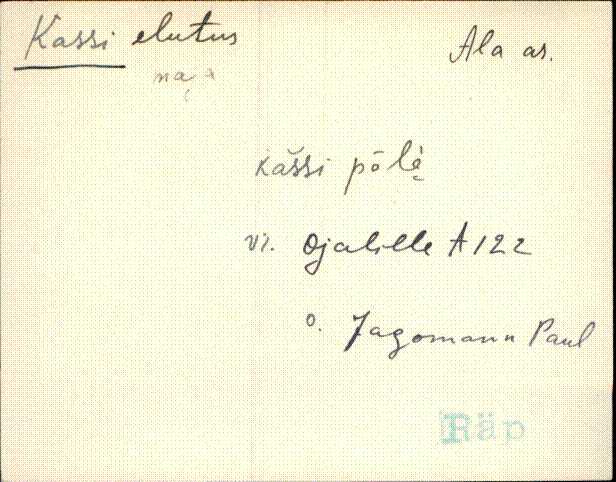 Kassi elutus Ala as.
kàssi pōlè
vi. Ojalille A 122
o. Jagomann Paul
Räp